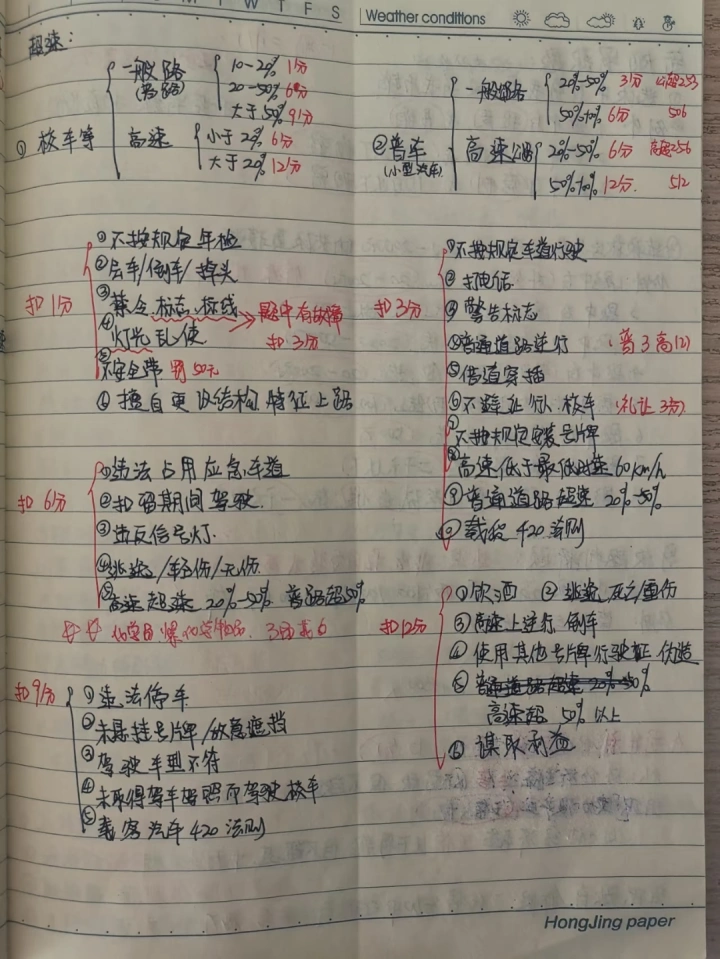 M T W T F S
Weather conditions
超速:
① 校车等
一般路
(普路)
10-20% 1分
20-50% 6分
大于50% 9分
高速
小于20% 6分
大于20% 12分
②普车
(小型汽车)
一般道路
20%-50% 3分
50%以上 6分 506
高速公路
20%-50% 6分 高速256
50%以上 12分. 512
扣1分
①不按规定年检
②会车/倒车/掉头
③禁令.标志.标线
④灯光乱使
⑤不安全带 罚50元
⑥擅自更改结构.特征上路
题中有故障
扣3分
扣3分
①不按规定车道行驶
②打电话
③警告标志
④普通道路逆行 (普3高12)
⑤借道穿插
⑥不避让行人.校车 (礼让3分)
⑦不按规定安装号牌
⑧高速低于最低时速60km/h
⑨普通道路超速20%-50%
⑩载货420法则
扣6分
①违法占用应急车道
②扣留期间驾驶.
③违反信号灯.
④逃逸/轻伤/无伤
⑤高速超速20%-50% 普路超50%
扣9分
①违法停车
②未悬挂号牌/故意遮挡
③驾驶车型不符
④未取得驾车驾照而驾驶校车
⑤载客汽车420法则
扣12分
①饮酒 ②逃逸死亡/重伤
③高速上逆行.倒车
④使用其他号牌行驶证.伪造
⑤普通道路超速20%-50%
高速超50%以上
⑥谋取利益
HongJing paper